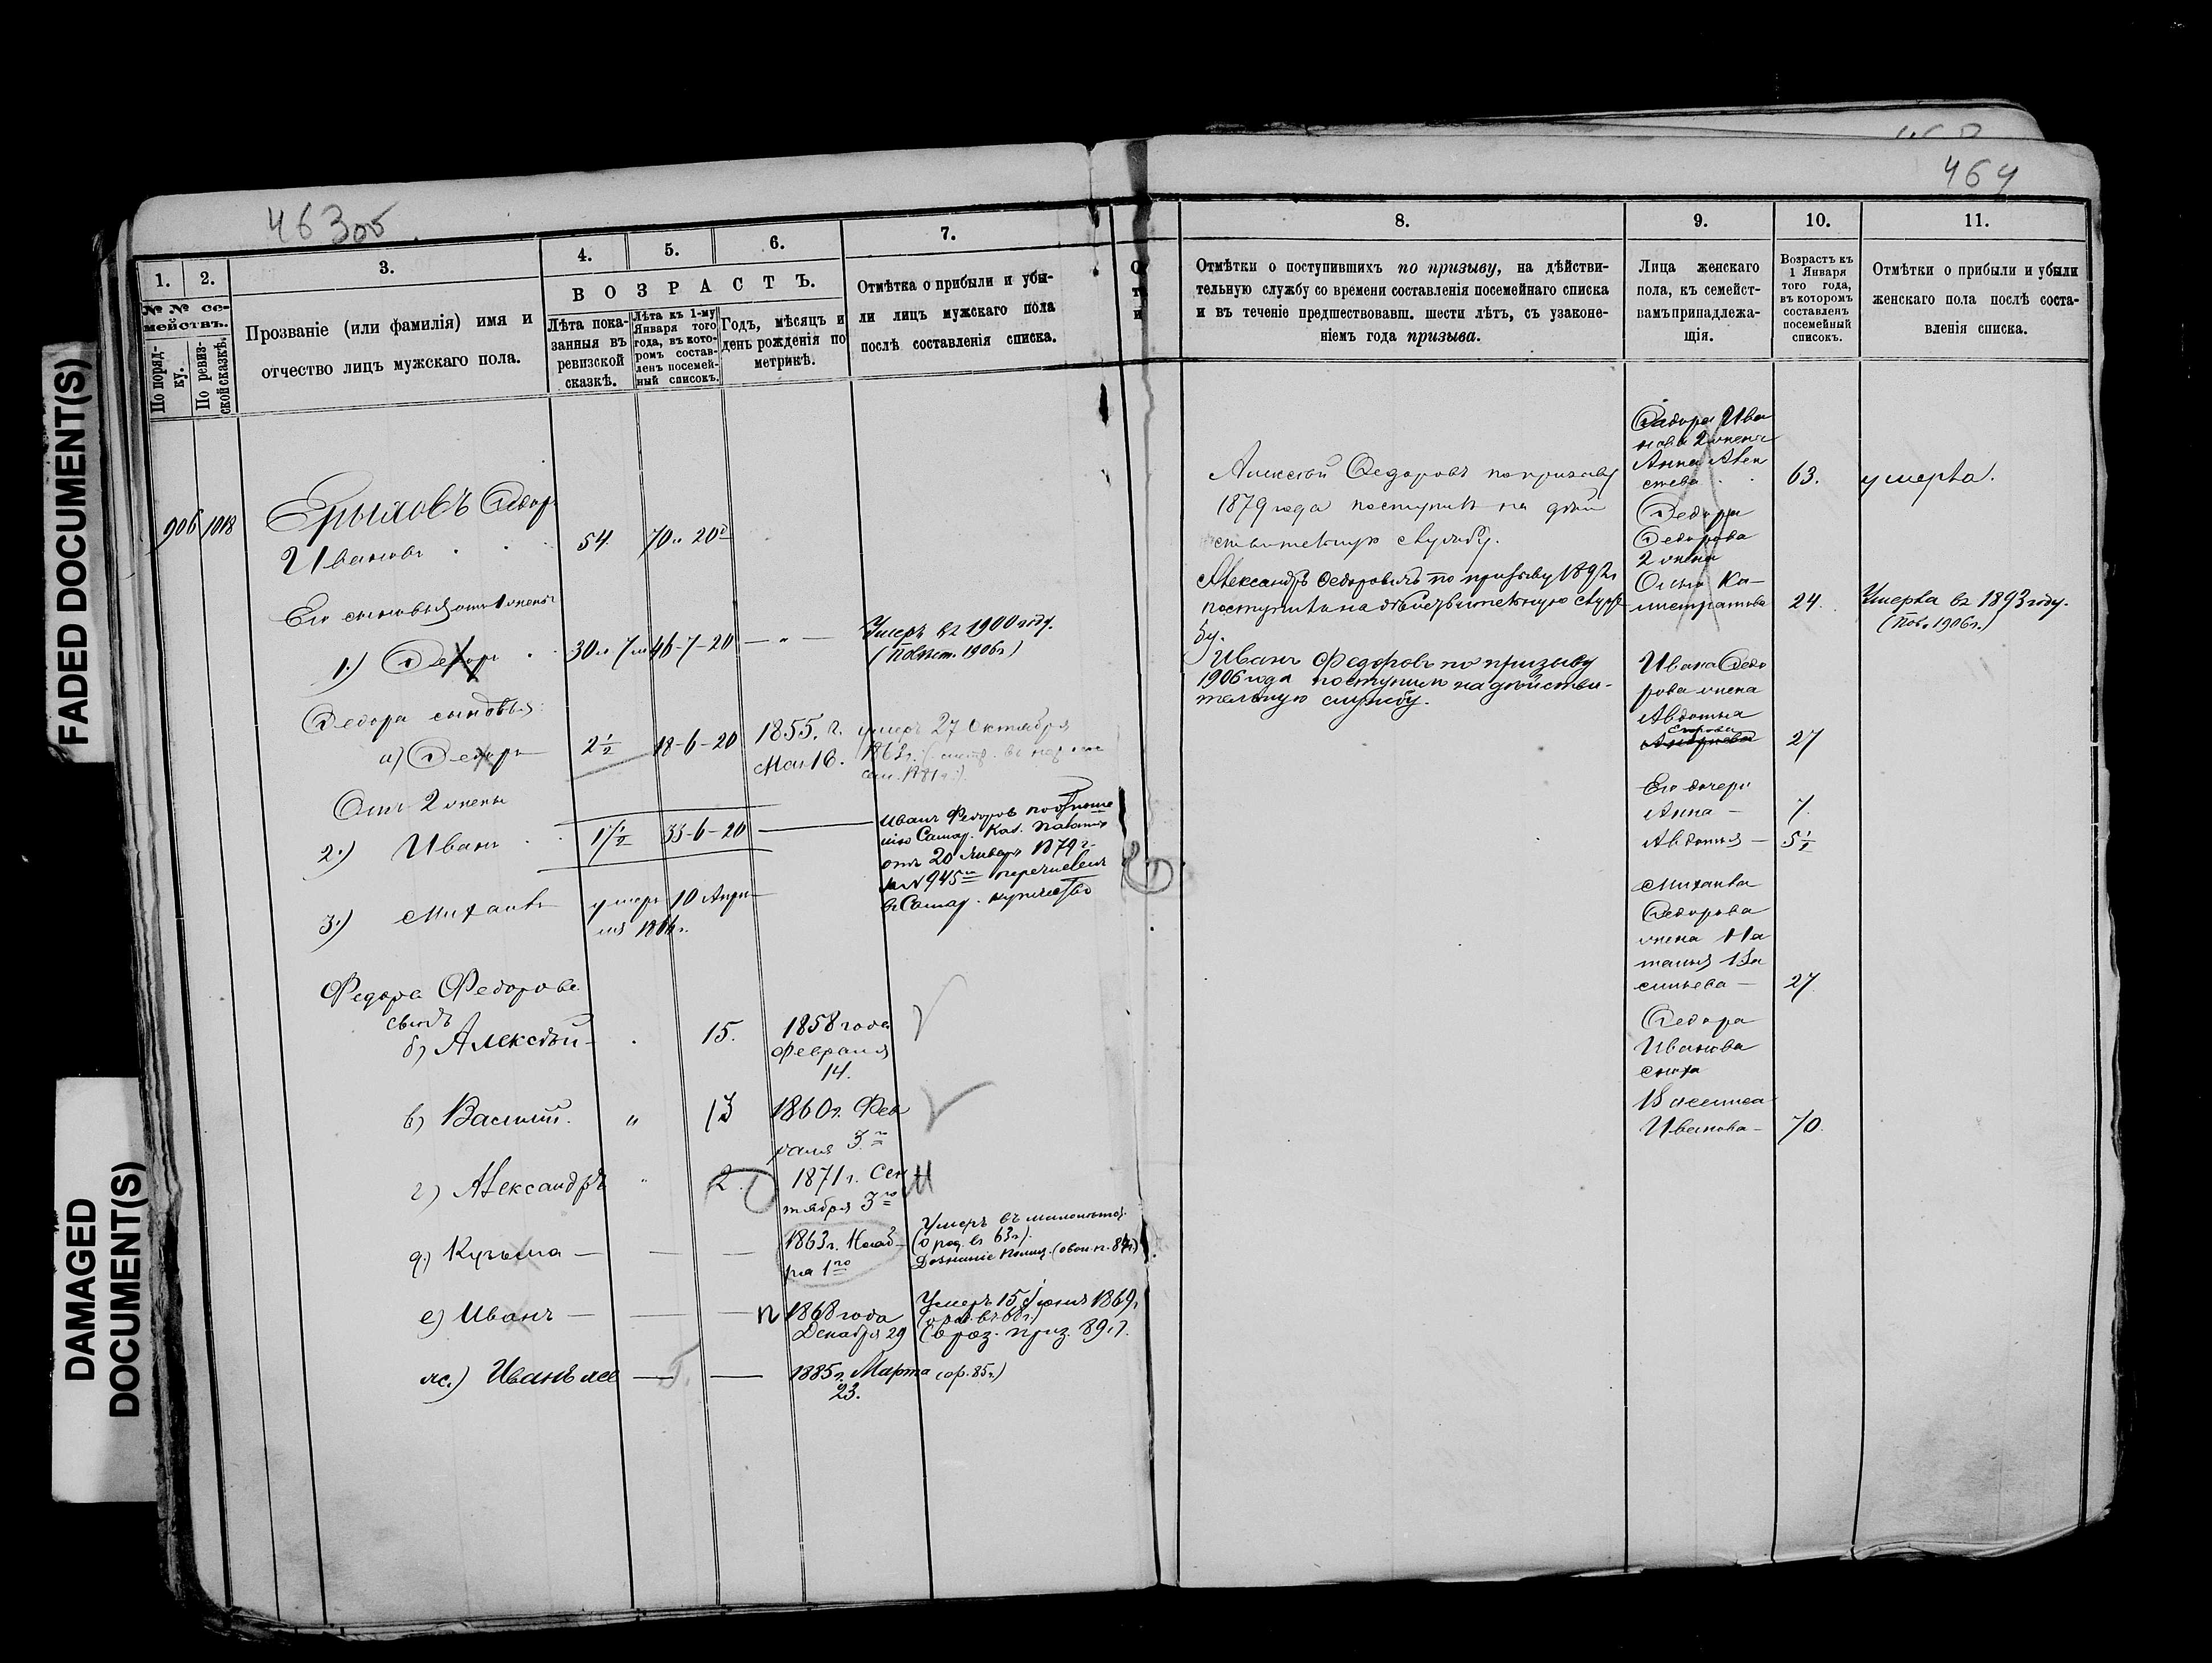 463 об.
464
FADED DOCUMENT(S)
DAMAGED
DOCUMENT(S)
1.
2.
3.
4.
5.
6.
7.
№ № се-
мействъ.
По поряд-
ку.
По ревиз-
ской сказкѣ.
Прозваніе (или фамилія) имя и
отчество лицъ мужскаго пола.
ВОЗРАСТЪ.
Лѣта пока-
занныя въ
ревизской
сказкѣ.
Лѣта къ 1-му
Января того
года, въ кото-
ромъ состав-
ленъ посемей-
ный списокъ.
Годъ, мѣсяцъ и
день рожденія по
метрикѣ.
Отмѣтка о прибыли и убы-
ли лицъ мужскаго пола
послѣ составленія списка.
906
1018
Ерыховъ Федоръ
Ивановъ
54
70 " 20
Его сыновья отъ 1 жены
1.) Федоръ
30 " 7 м
46-7-20
Умеръ въ 1900 году.
(Повѣст. 1906 г.)
Федора сыновья:
а) Федоръ
2½
18-6-20
1855. г.
Мая 16.
умеръ 27 Октября
Отъ 2 жены
2.) Иванъ
17½
33-6-20
Иванъ Федоровъ
отъ 20 Января 1879 г.
№ 945 перечисленъ
въ Самар. купечество
3.) Михаилъ
умеръ 10 Апрѣ-
ля
Федора Федорова
сынъ
б) Алексѣй
15.
1858 года
Февраля
14.
в) Василій.
"
13
1860 г. Фев
раля 3го
г) Александръ
"
2
1871 г. Сен
тября 3го
д.) Кузьма
1863 г. Нояб-
ря 1го
Умеръ въ малолѣтст.
(о род. въ 63 г.).
е) Иванъ
1868 года
Декабря 29
Умеръ 15 Іюня 1869 г.
(о род. въ 68 г.)
ж.) Иванъ же
1885 г. Марта (ор. 85 г.)
23.
8.
9.
10.
11.
Отмѣтки о поступившихъ по призыву, на дѣйстви-
тельную службу со времени составленія посемейнаго списка
и въ теченіе предшествовавш. шести лѣтъ, съ узаконе-
ніемъ года призыва.
Лица женскаго
пола, къ семейст-
вамъ принадлежа-
щія.
Возрастъ къ
1 Января
того года,
въ которомъ
составленъ
посемейный
списокъ.
Отмѣтки о прибыли и убыли
женскаго пола послѣ соста-
вленія списка.
Алексѣй Федоровъ по призыву
1879 года поступилъ на дѣй
ствительную службу.
Александръ Федоровичъ по призыву 1892 г.
поступилъ на дѣйствительную служ-
бу.
Иванъ Федоровъ по призыву
1906 года поступилъ на дѣйстви-
тельную службу.
Федора Ива
нова 2 жена
Анна Алек
сѣева
63.
умерла.
Федора
Федорова
2 жена
Ка-
листратова
24.
Умерла въ 1893 году.
(Пов. 1906 г.)
Ивана Федо
рова жена
Авдотья
27
Его дочери
Анна
7.
Авдотья
5½
Михаила
Федорова
жена На
талья Ва
сильева
27
Федора
Иванова
сноха
Василиса
Иванова
70.